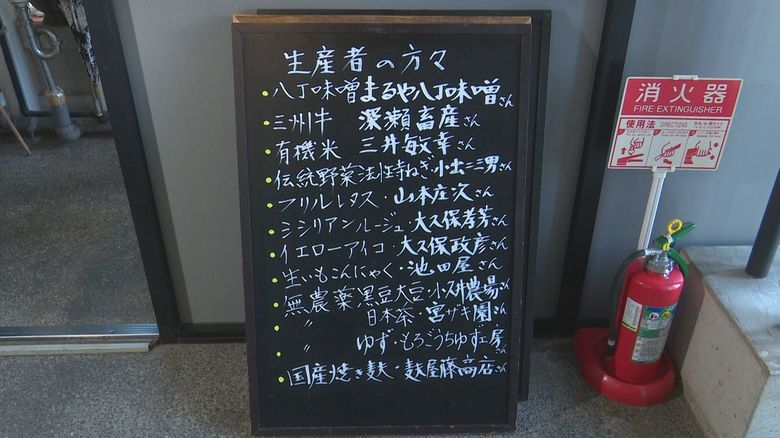 生産者の方々
・八丁味噌 まるや八丁味噌さん
・三州牛 深瀬畜産さん
・有機米 三井敏幸さん
・伝統野菜法性寺ねぎ・小出三男さん
・フリルレタス・山本庄次さん
・シシリアンルージュ・大久保孝芳さん
・イエローアイコ・大久保政彦さん
・生いもこんにゃく・池田屋さん
・無農薬黒豆大豆・小久井農場さん
・〃 日本茶・宮ザキ園さん
・〃 ゆず・もろこうちゆず工房さん
・国産焼き麩・麩屋藤商店さん
消火器
FIRE EXTINGUISHER
使用法 DIRECTIONS